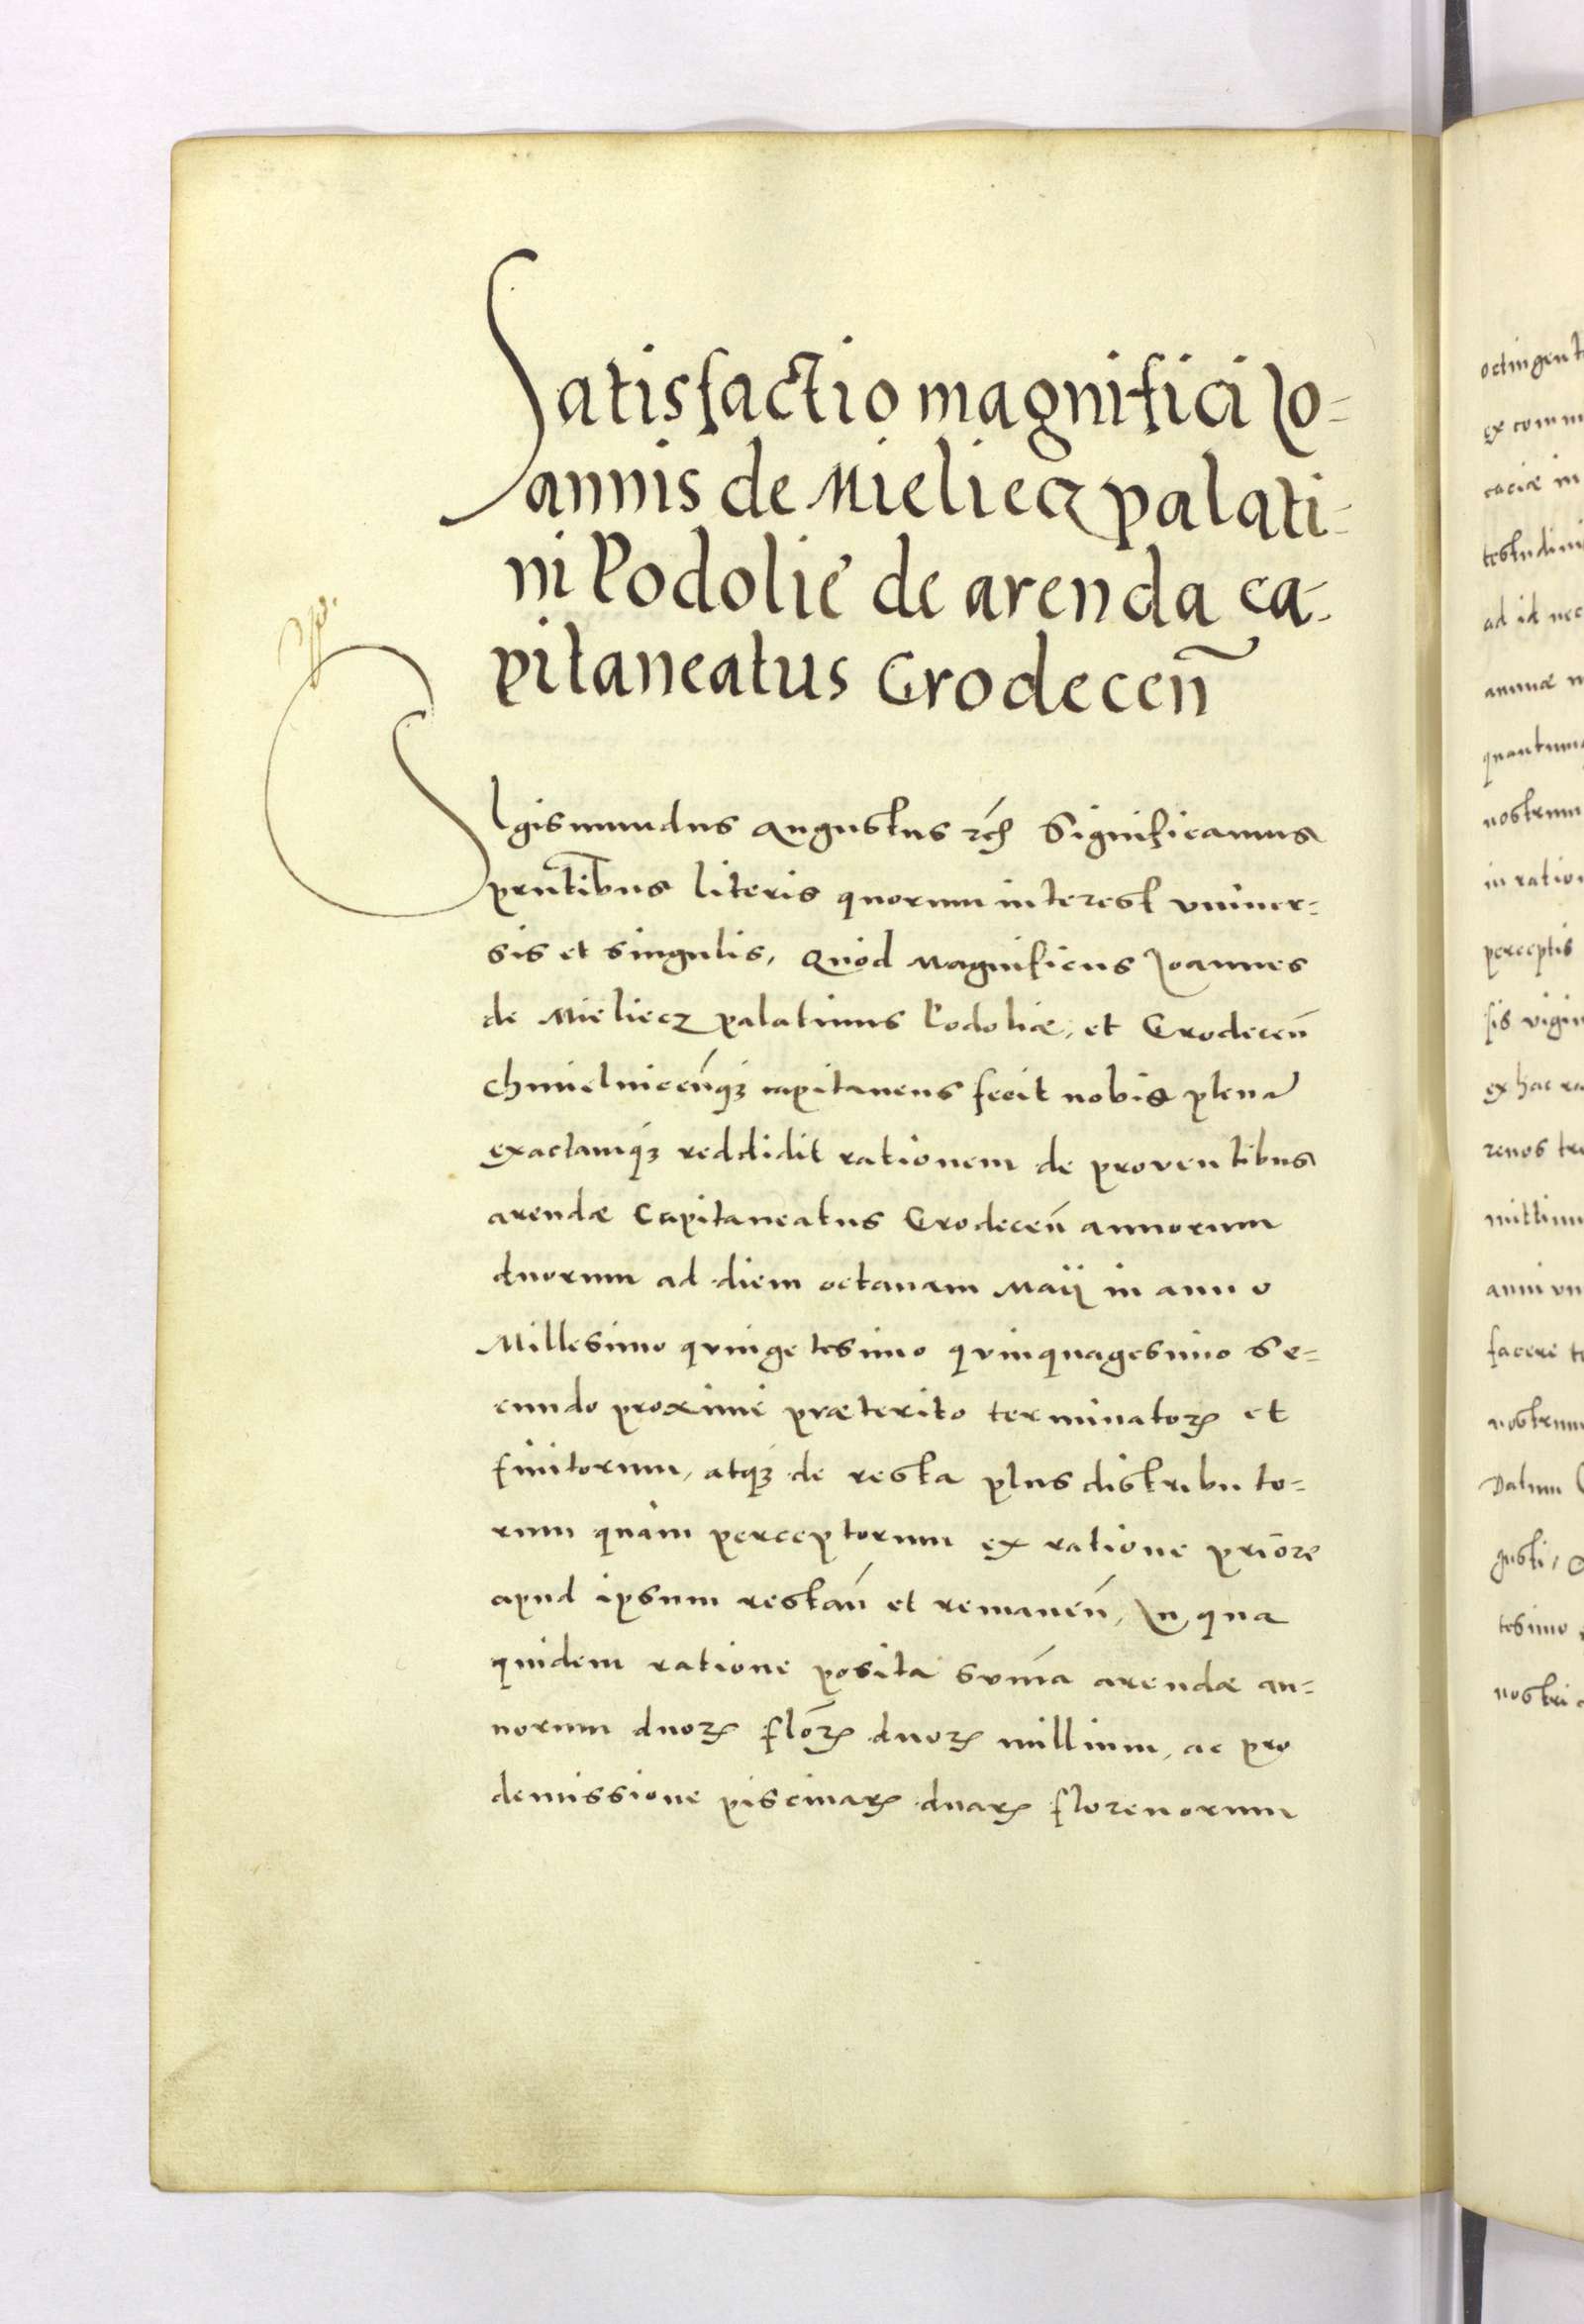 Satisfactio magnifici Jo=
annis de Mieliecz palati=
ni Podolie de arenda ca-
pitaneatus Grodeceñ
SIgismundus Augustus rc̃ Significamus
prn̄tibus literis quorum interest vniuer=
sis et singulis, Quòd Magnificus Joannes
de Mieliecz palatinus Podoliæ, et Grodeceñ
Chmielniceñq₃ capitaneus fecit nobis plenā
exactamq₃ reddidit rationem de prouentibus
arendæ Capitaneatus Grodeceñ annorum
duorum ad diem octauam Maij in anno
Millesimo quingetesimo quinquagesimo Se=
cundo proximè præterito terminatoꝝ et
finitorum, atq₃ de resta plus distributo=
rum quàm perceptorum ex ratione priore
apud ipsum restañ et remaneñ, In qua
quidem ratione posita sum̄a arendæ an=
norum duoꝝ flōꝝ duoꝝ millium, ac pro
demissione piscinaꝝ duaꝝ florenorum
octingent
ex comm
caciæ in
testudini
ad id nec
annuæ n
quantum
nostrum
in ratio
perceptis
sis vigin
ex hac ra
renos tre
mittimu
anni vn
facere te
nostrum
Datum
gusti,
tesimo
nostri